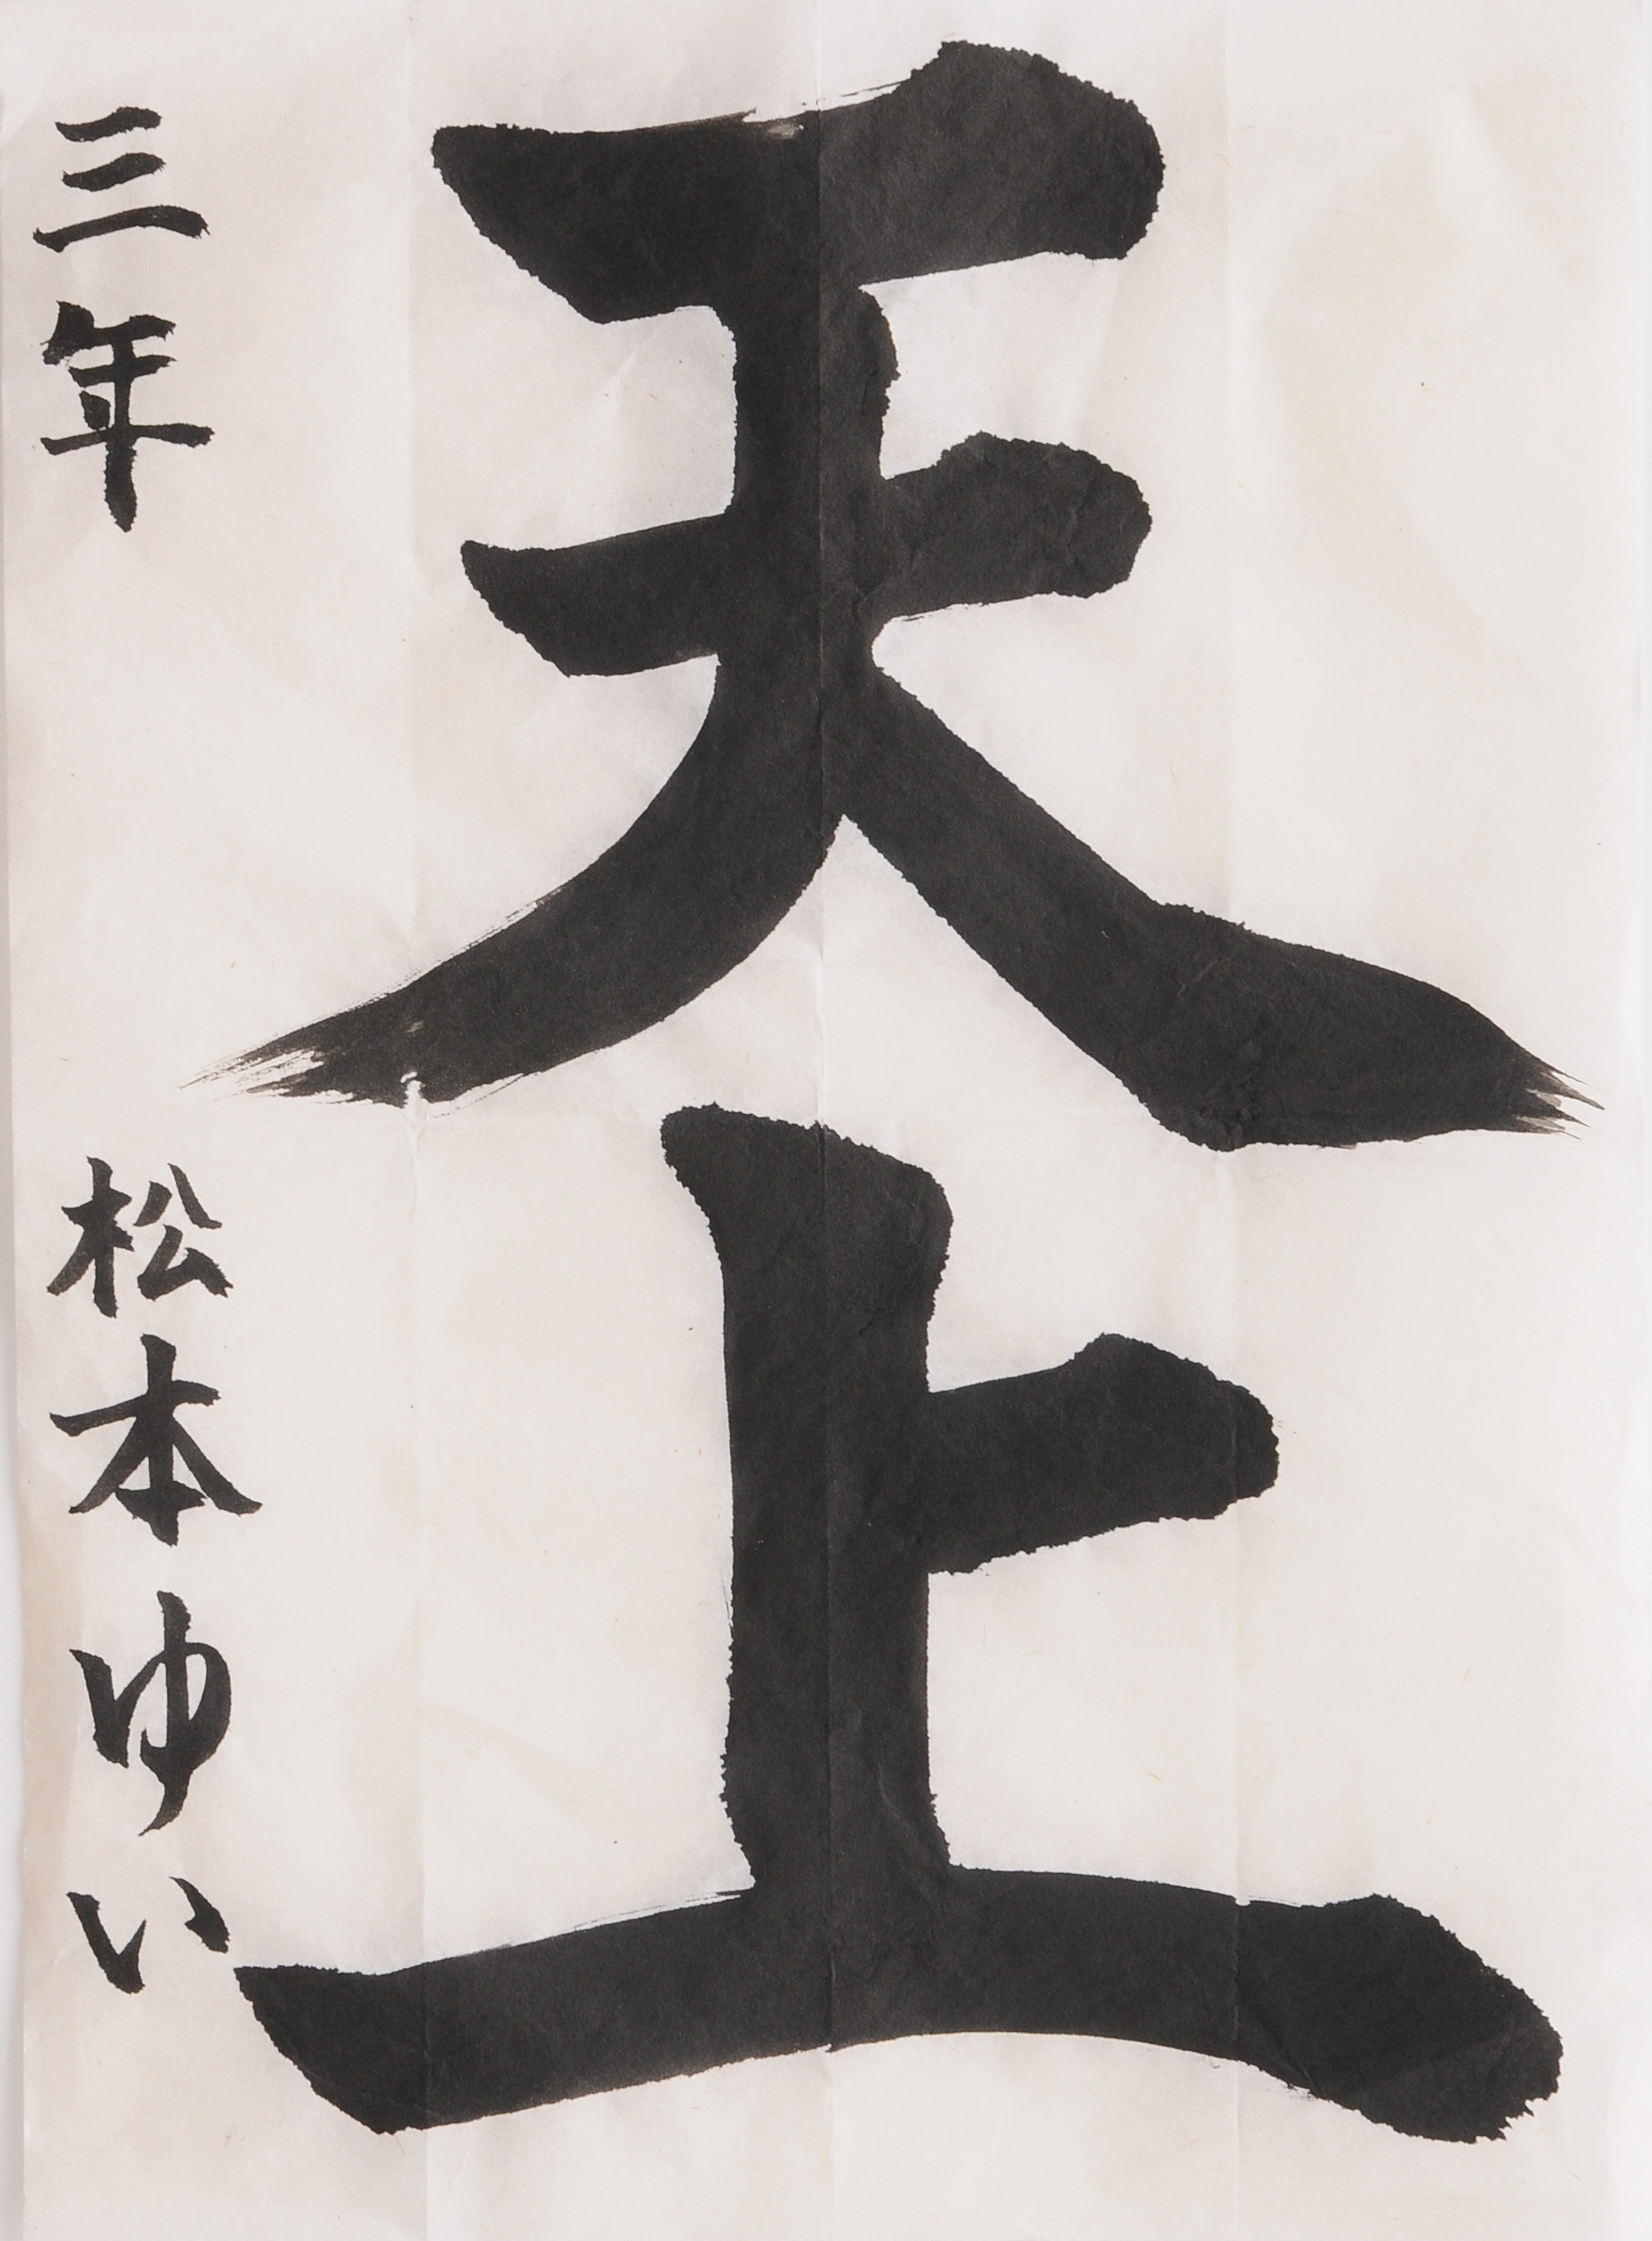 天上
三年 松本ゆい